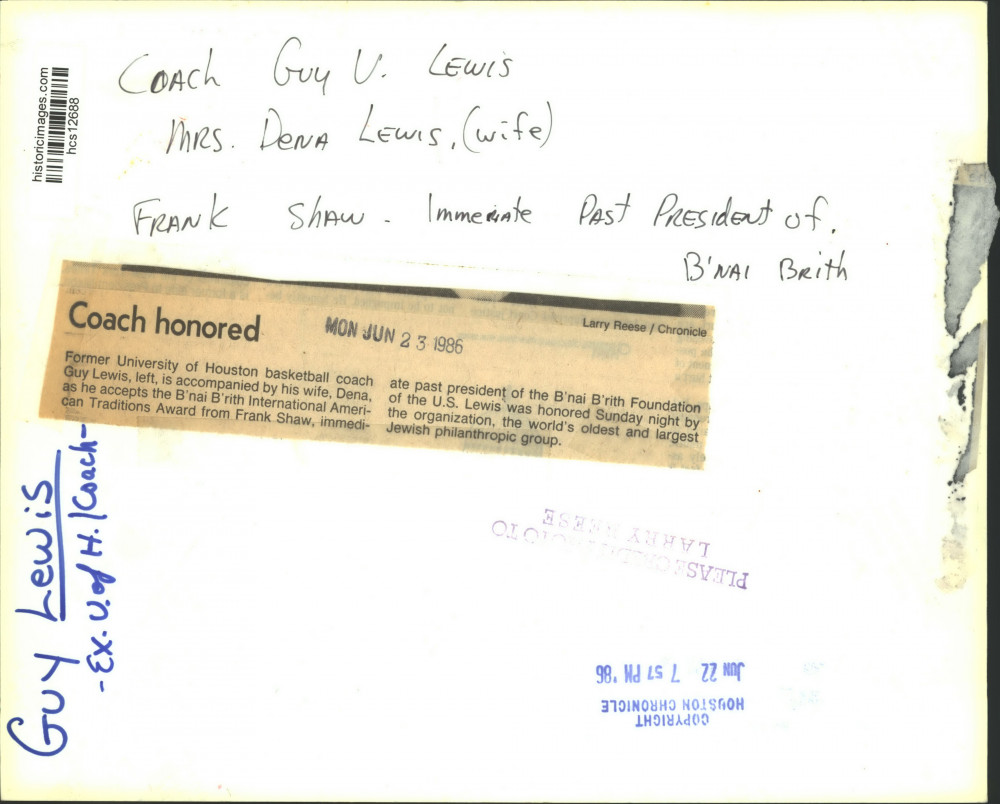 historicimages.com
hcs12688
COACh Guy V. LEWIS
MRS. DENA LEWIS, (wife)
FRANK SHAW - Immediate PAST PRESIDENT of.
B'NAI BRith
Coach honored
MON JUN 23 1986
Larry Reese / Chronicle
Former University of Houston basketball coach
Guy Lewis, left, is accompanied by his wife, Dena,
as he accepts the B'nai B'rith International Ameri-
can Traditions Award from Frank Shaw, immedi-
ate past president of the B'nai B'rith Foundation
of the U.S. Lewis was honored Sunday night by
the organization, the world's oldest and largest
Jewish philanthropic group.
Guy Lewis
-Ex. U. of H. Coach-
PLEASE CREDIT PHOTO TO
LARRY REESE
COPYRIGHT
HOUSTON CHRONICLE
JUN 22 7 57 PM '86